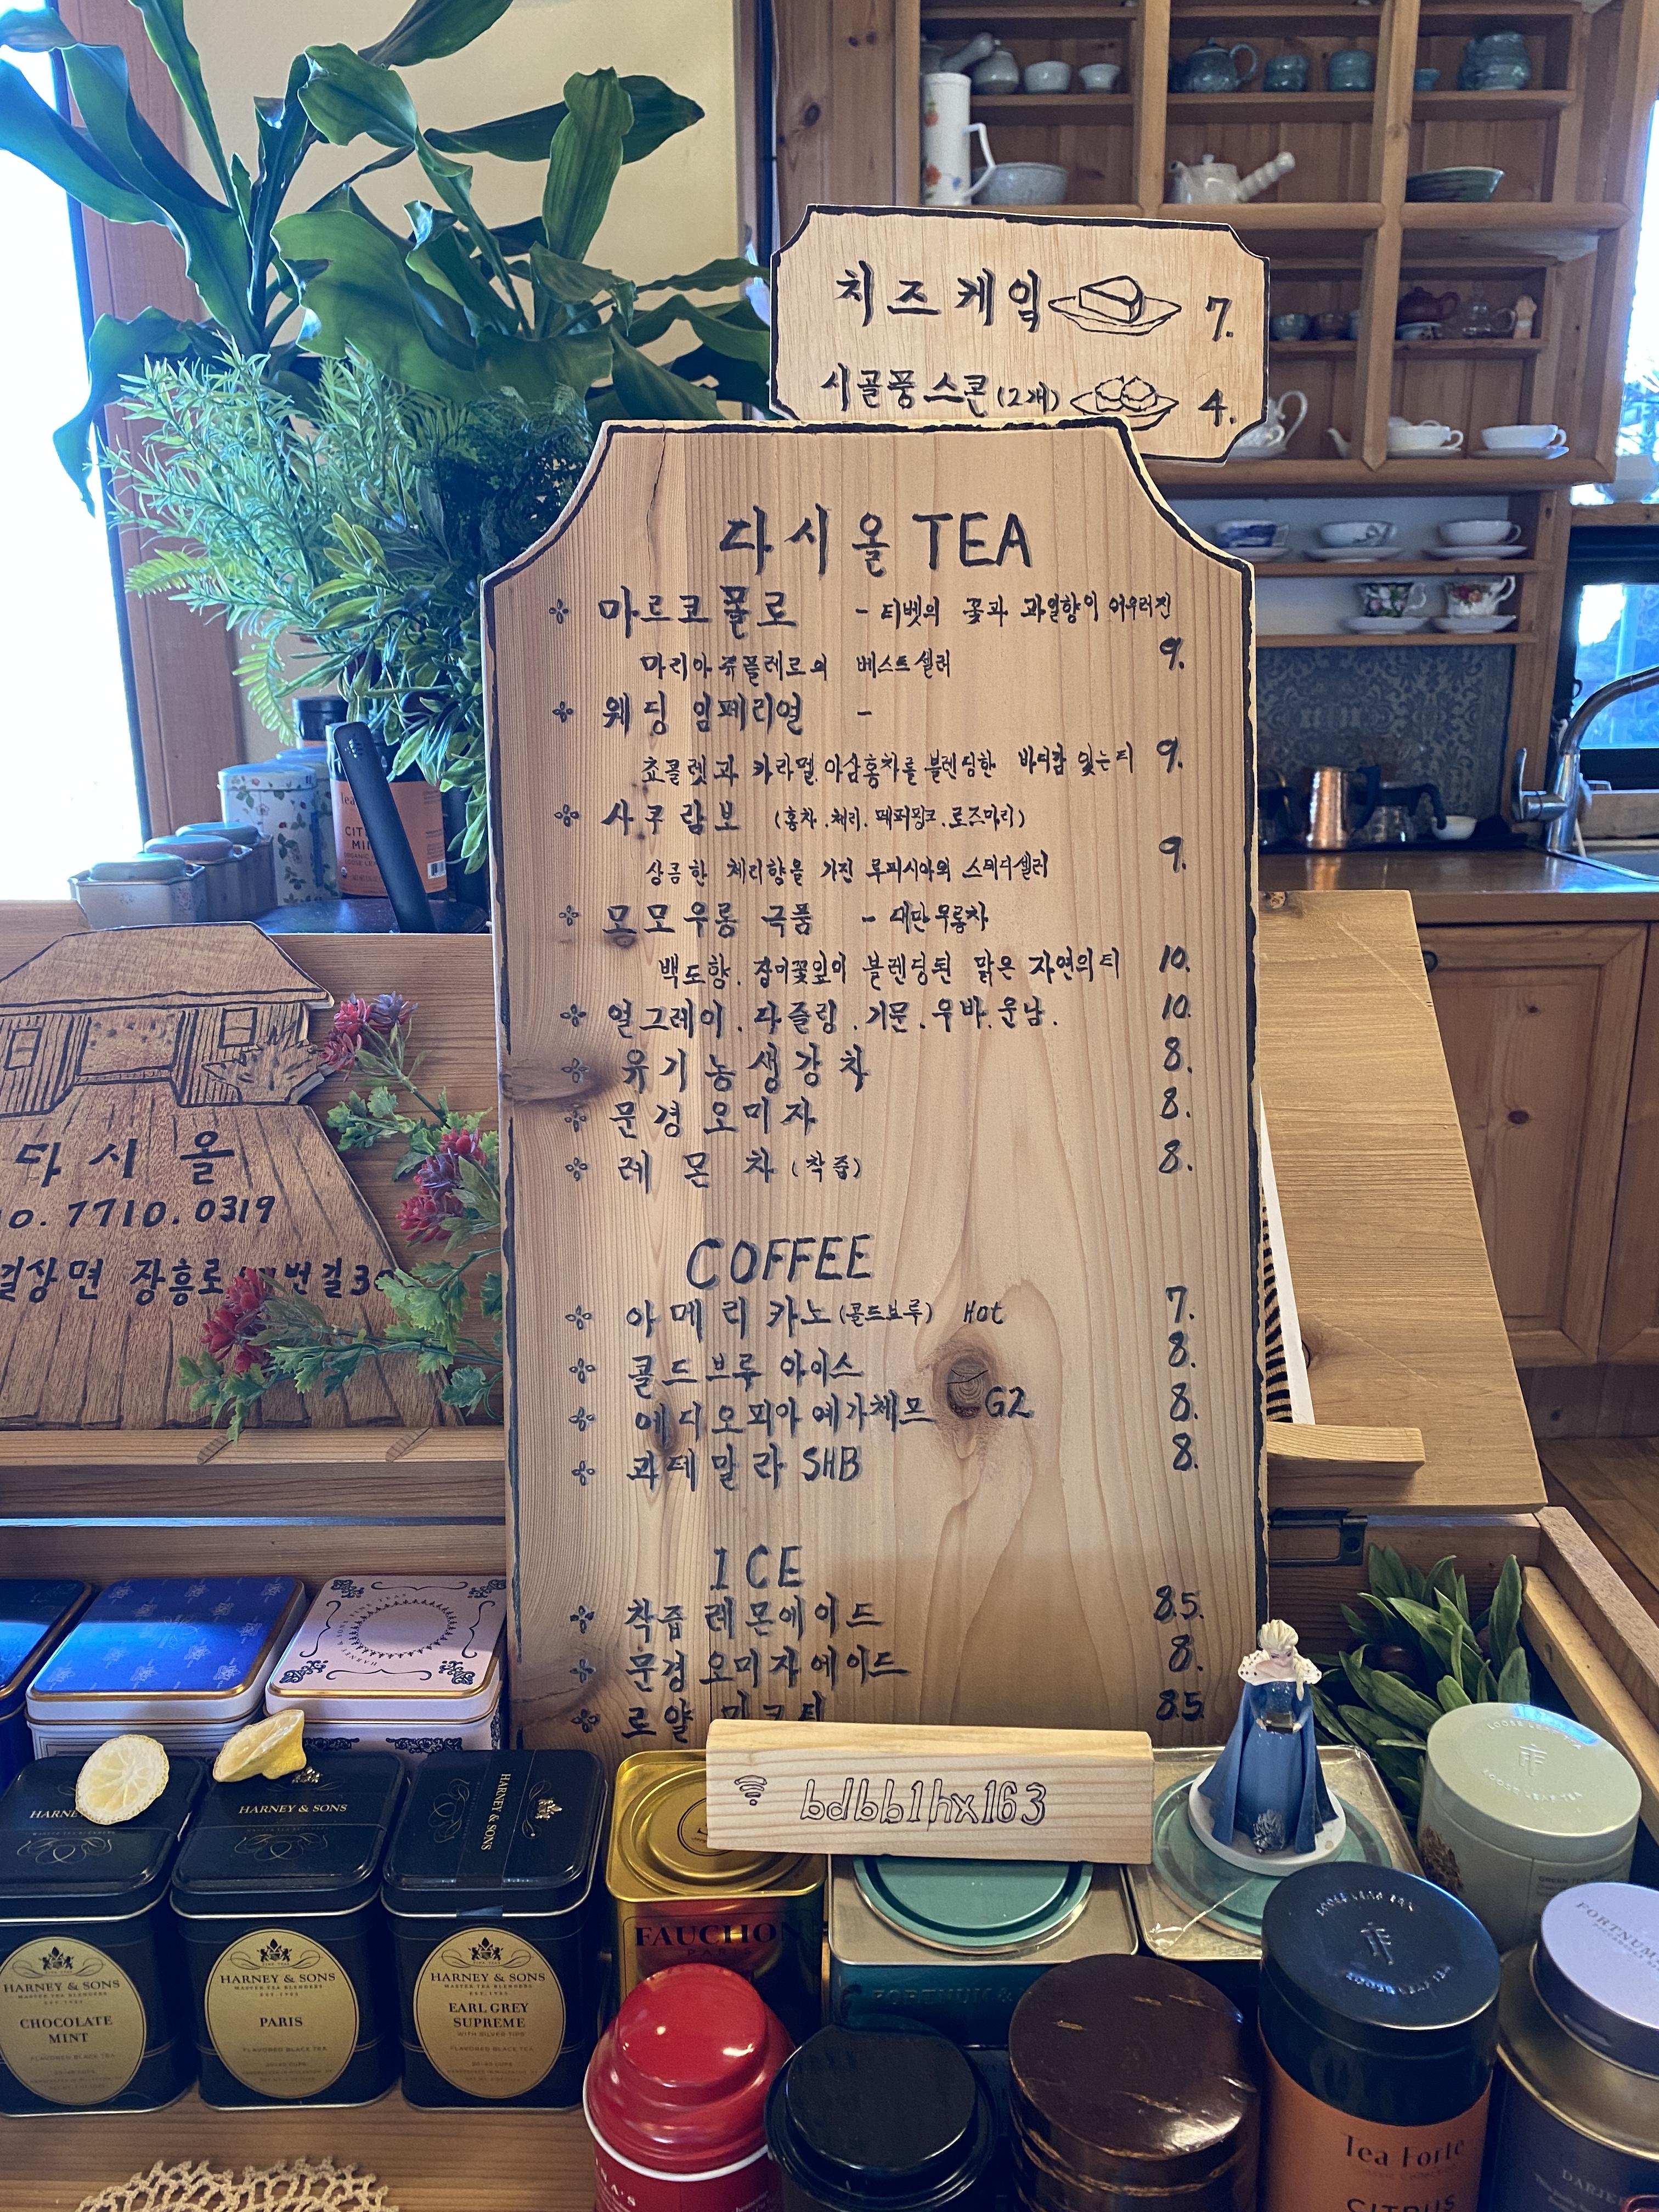 치즈케잌 7.
시골풍스콘(2개) 4.
다시올 TEA
마르코폴로 - 티벳의 꽃과 과일향이 어우러진
마리아쥬플레르의 베스트셀러 9.
웨딩 임페리얼 -
쵸콜렛과 카라멜, 아삼홍차를 블렌딩한 바디감 있는 티 9.
사쿠람보 (홍차. 체리. 페퍼밍크. 로즈마리)
상큼한 체리향을 가진 루피시아의 스테디셀러 9.
몽모우롱 극품 - 대만우롱차
백도향. 장미꽃잎이 블렌딩된 맑은 자연의 티 10.
얼그레이. 다즐링. 기문. 우바. 운남. 10.
유기농생강차 8.
문경 오미자 8.
레몬차 (착즙) 8.
COFFEE
아메리카노(콜드브루) Hot 7.
콜드브루 아이스 8.
에디오피아 예가체프 G2 8.
과테말라 SHB 8.
ICE
착즙 레몬에이드 8.5.
문경 오미자에이드 8.
로얄 밀크티 8.5.
bdbb1hx163
다시올
0. 7710. 0319
상면 장흥로 번길3
HARNEY & SONS
HARNEY & SONS
HARNEY & SONS
MASTER TEA BLENDERS
CHOCOLATE
MINT
FLAVORED BLACK TEA
HARNEY & SONS
MASTER TEA BLENDERS
EST. 1983
PARIS
FLAVORED BLACK TEA
HARNEY & SONS
MASTER TEA BLENDERS
EST. 1983
EARL GREY
SUPREME
WITH SILVER TIPS
FLAVORED BLACK TEA
FAUCHON
PARIS
FORTNUM &
LOOSE LEAF TEA
LOOSE LEAF TEA
LOOSE LEAF TEA
LOOSE LEAF TEA
Tea Forte
CITRUS
FORTNUM